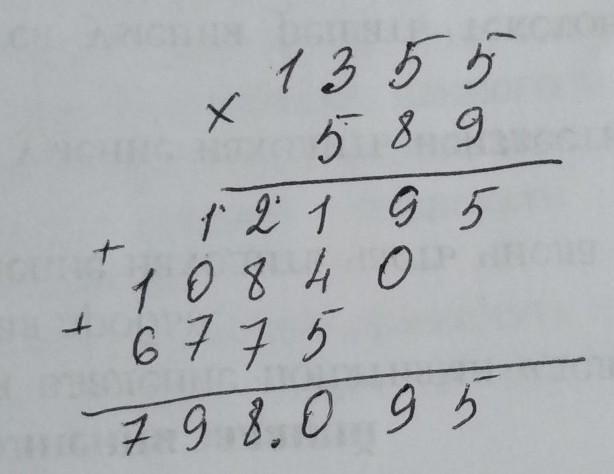 1355
× 589
12195
+ 10840
+ 6775
798.095